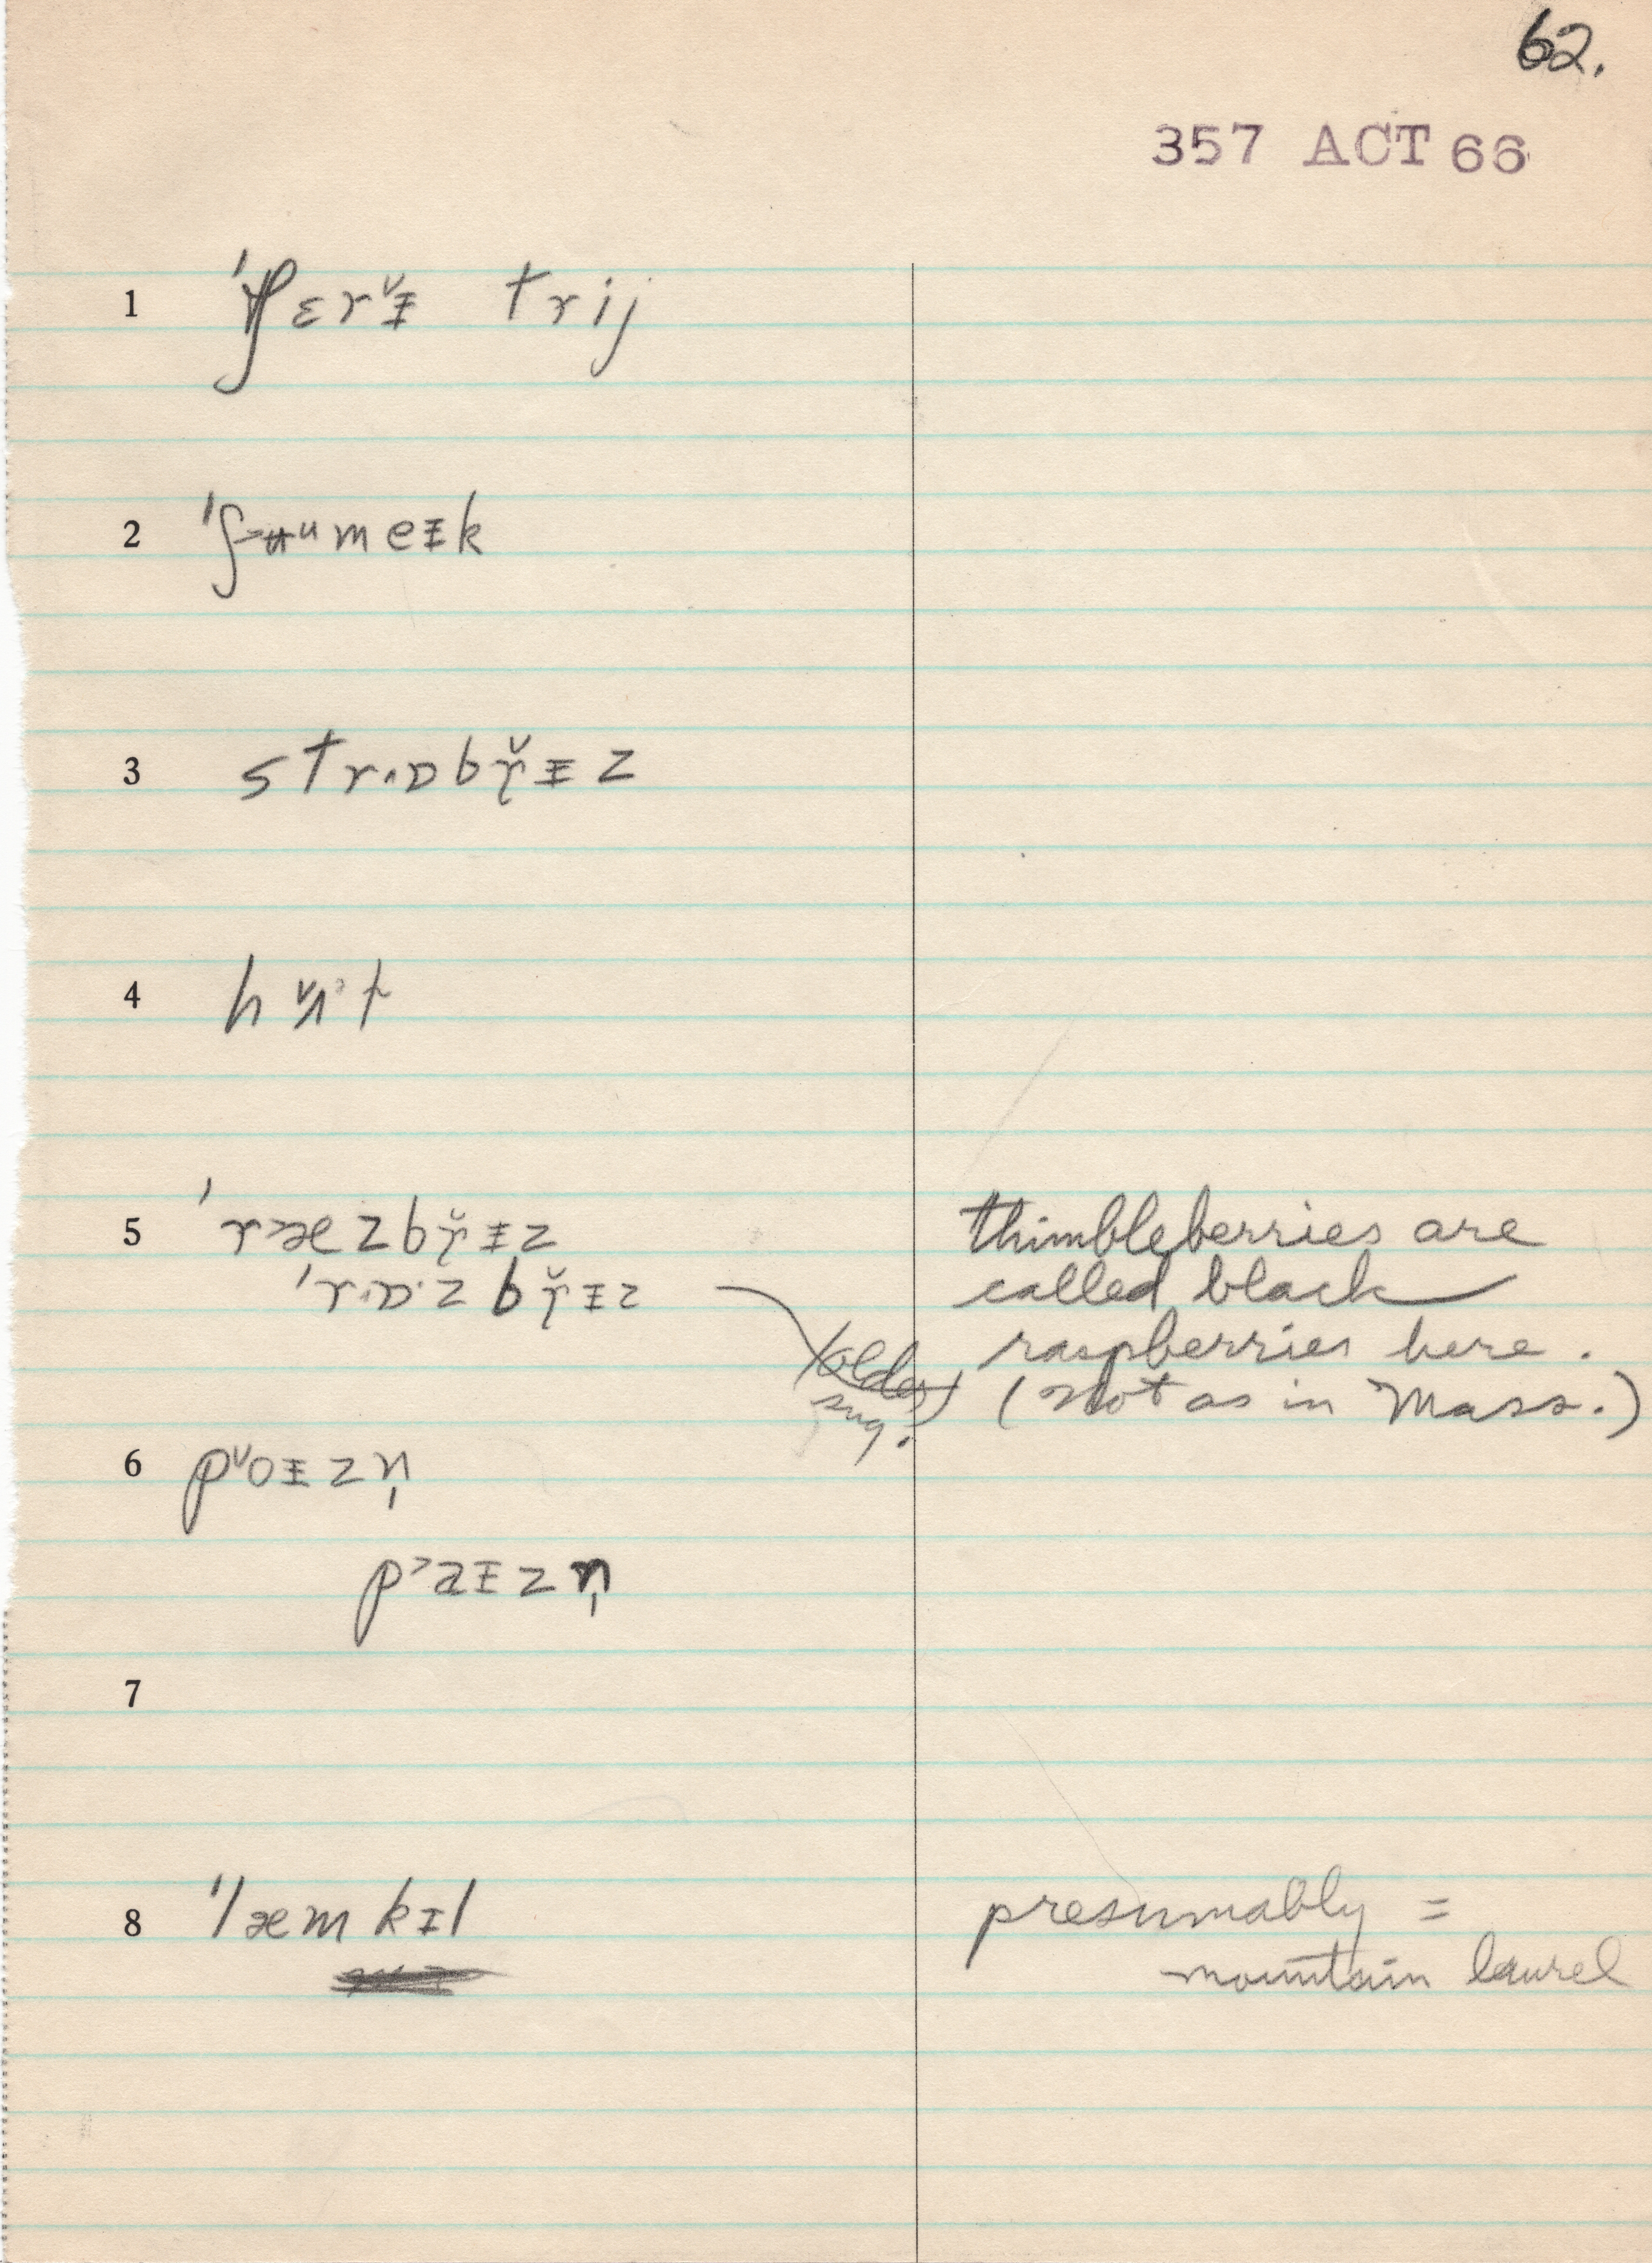 62.
357 ACT 66
1 ˈʃɛrᵛɨ trij
2 ˈʃ˃ʉᵘmeɨk
3 strɒbɤ̆ɨz
4 hᵛʌt
5 ˈr˃æzbɤ̆ɨz
ˈr·ɒ·zbɤ̆ɨz
thimbleberries are
called black
raspberries here.
(Not as in Mass.)
(older)
sug.
6 pᵛoɨzn̩
p˃aɨzn̩
7
8 ˈlæmkɨl
presumably =
mountain laurel